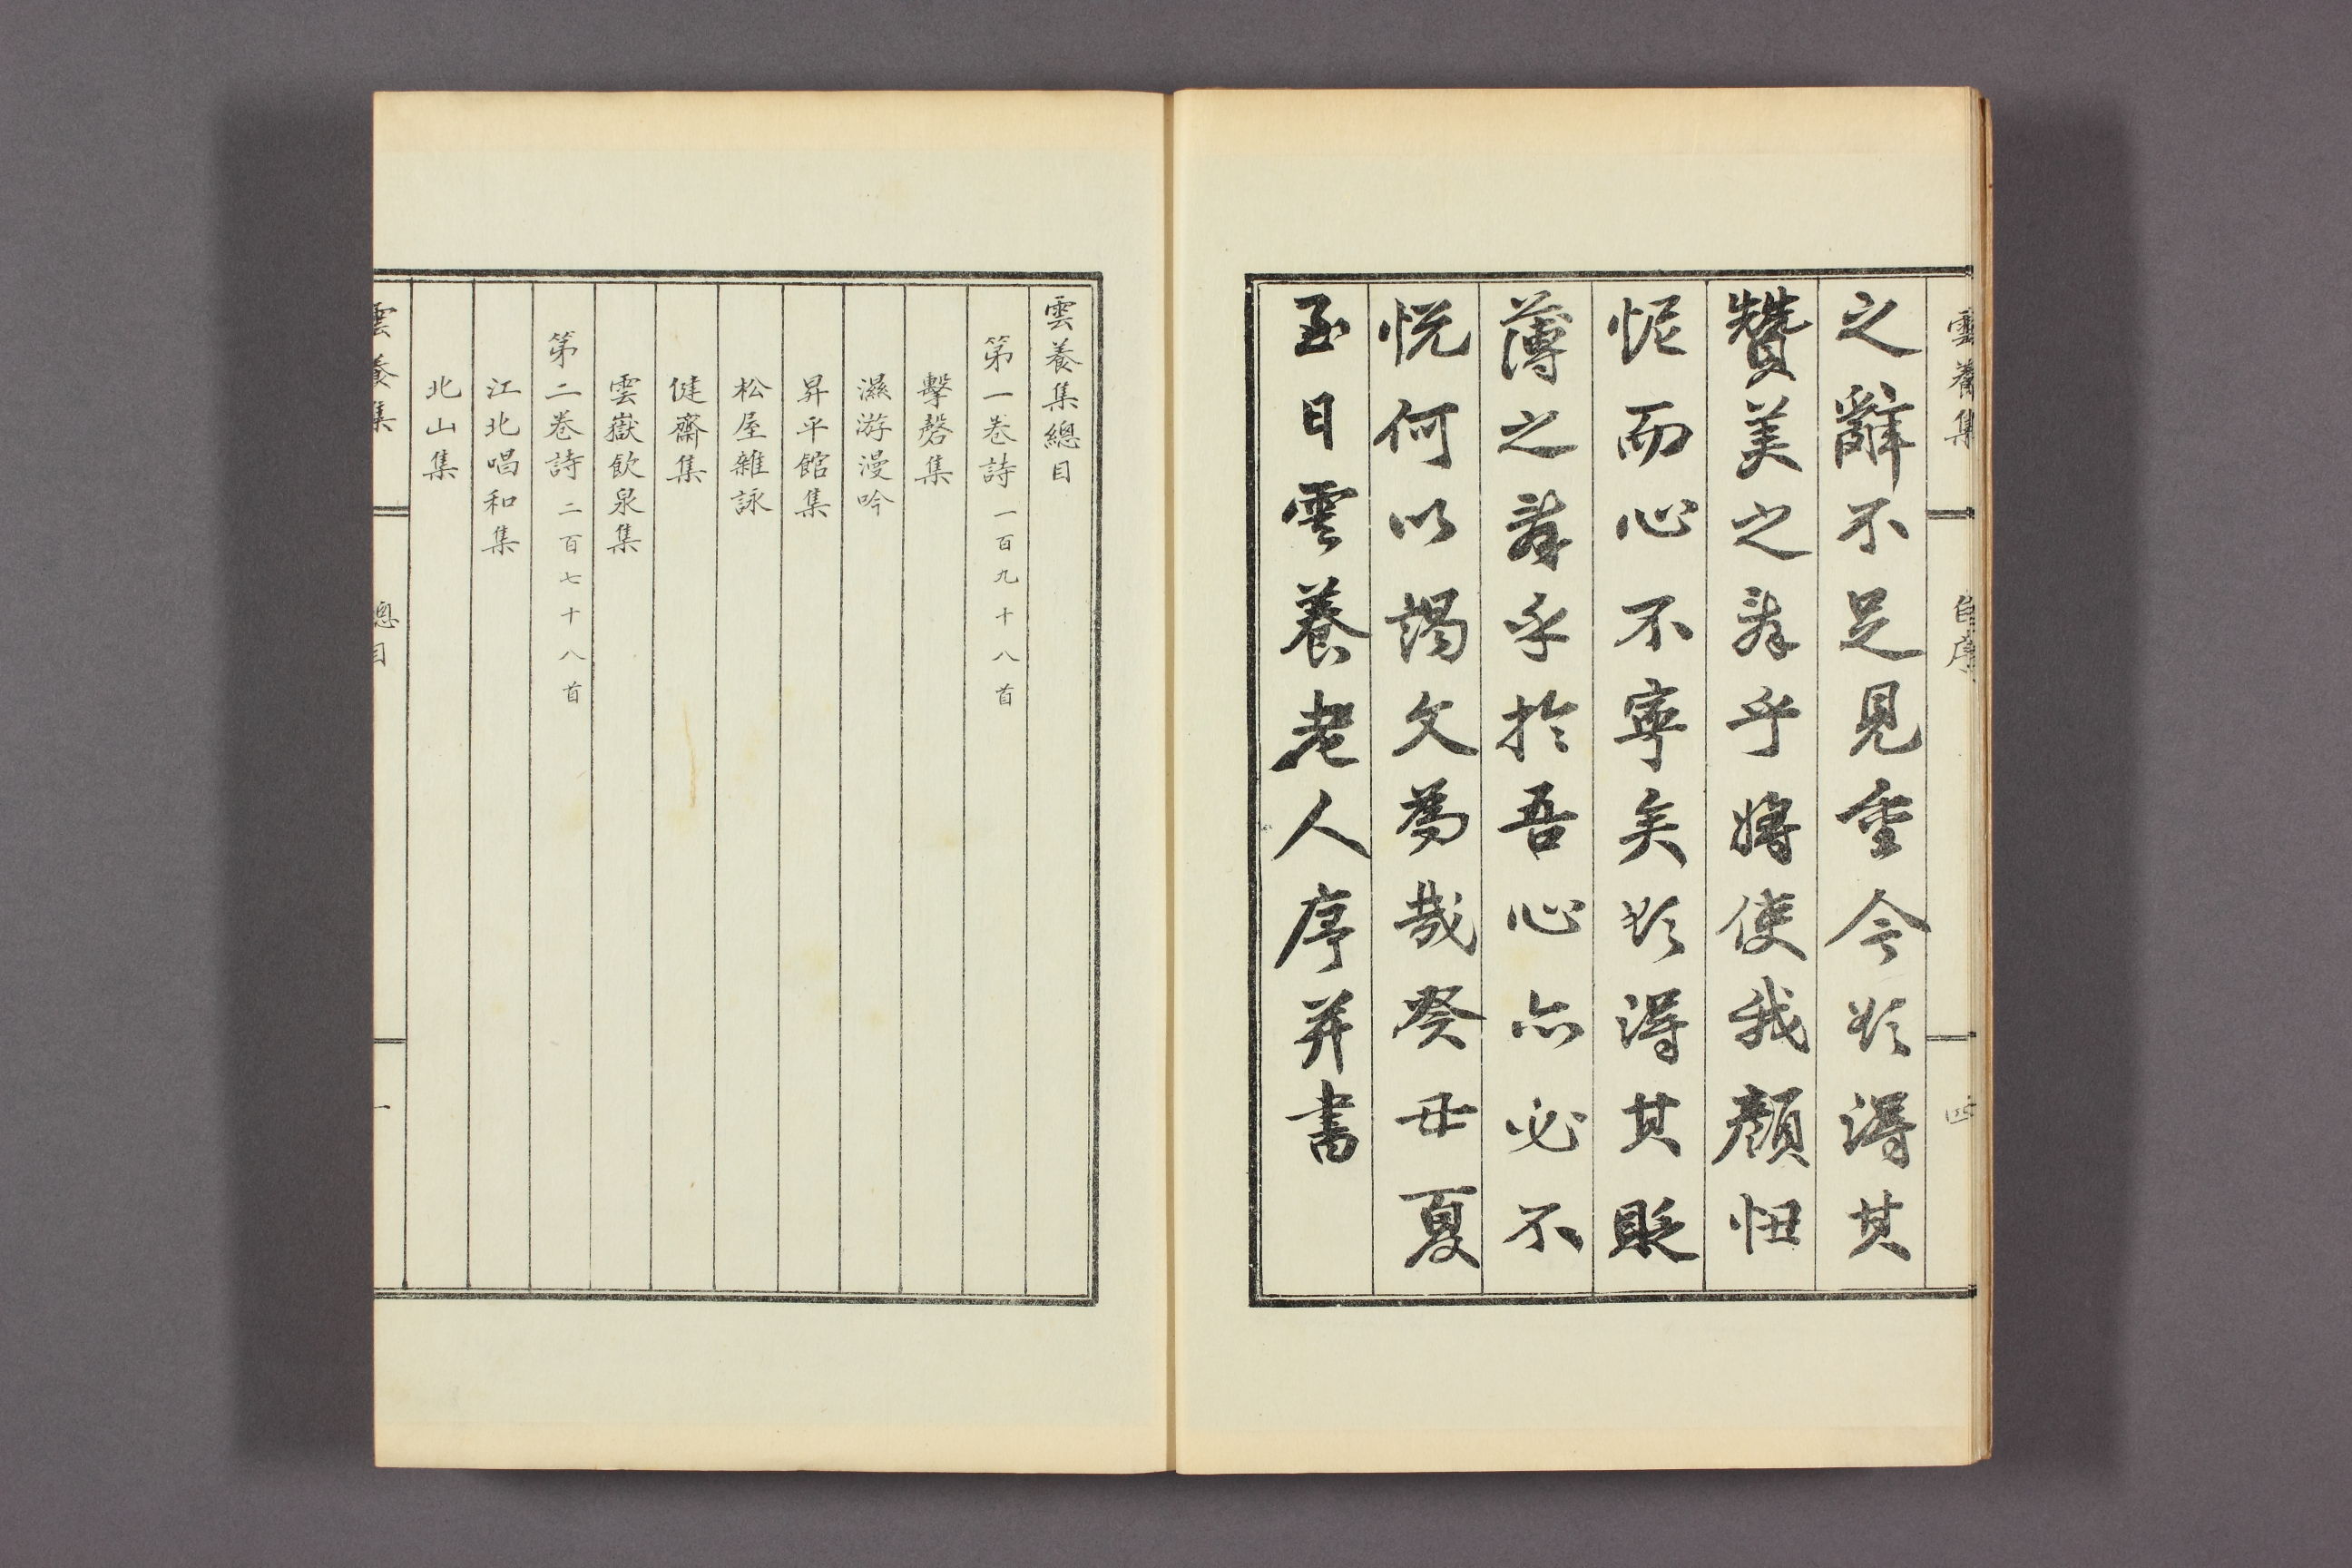 雲養集
自序
四
之辭不足見重今欲得其
贊美之辭乎將使我顏忸
怩而心不寧矣欲得其貶
薄之辭乎於吾心亦必不
悅何以謁文為哉癸丑夏
至日雲養老人序并書
雲養集總目
第一卷詩一百九十八首
擊磬集
濕游漫吟
昇平館集
松屋雜詠
健齋集
雲嶽飲泉集
第二卷詩二百七十八首
江北唱和集
北山集
雲養集
總目
一